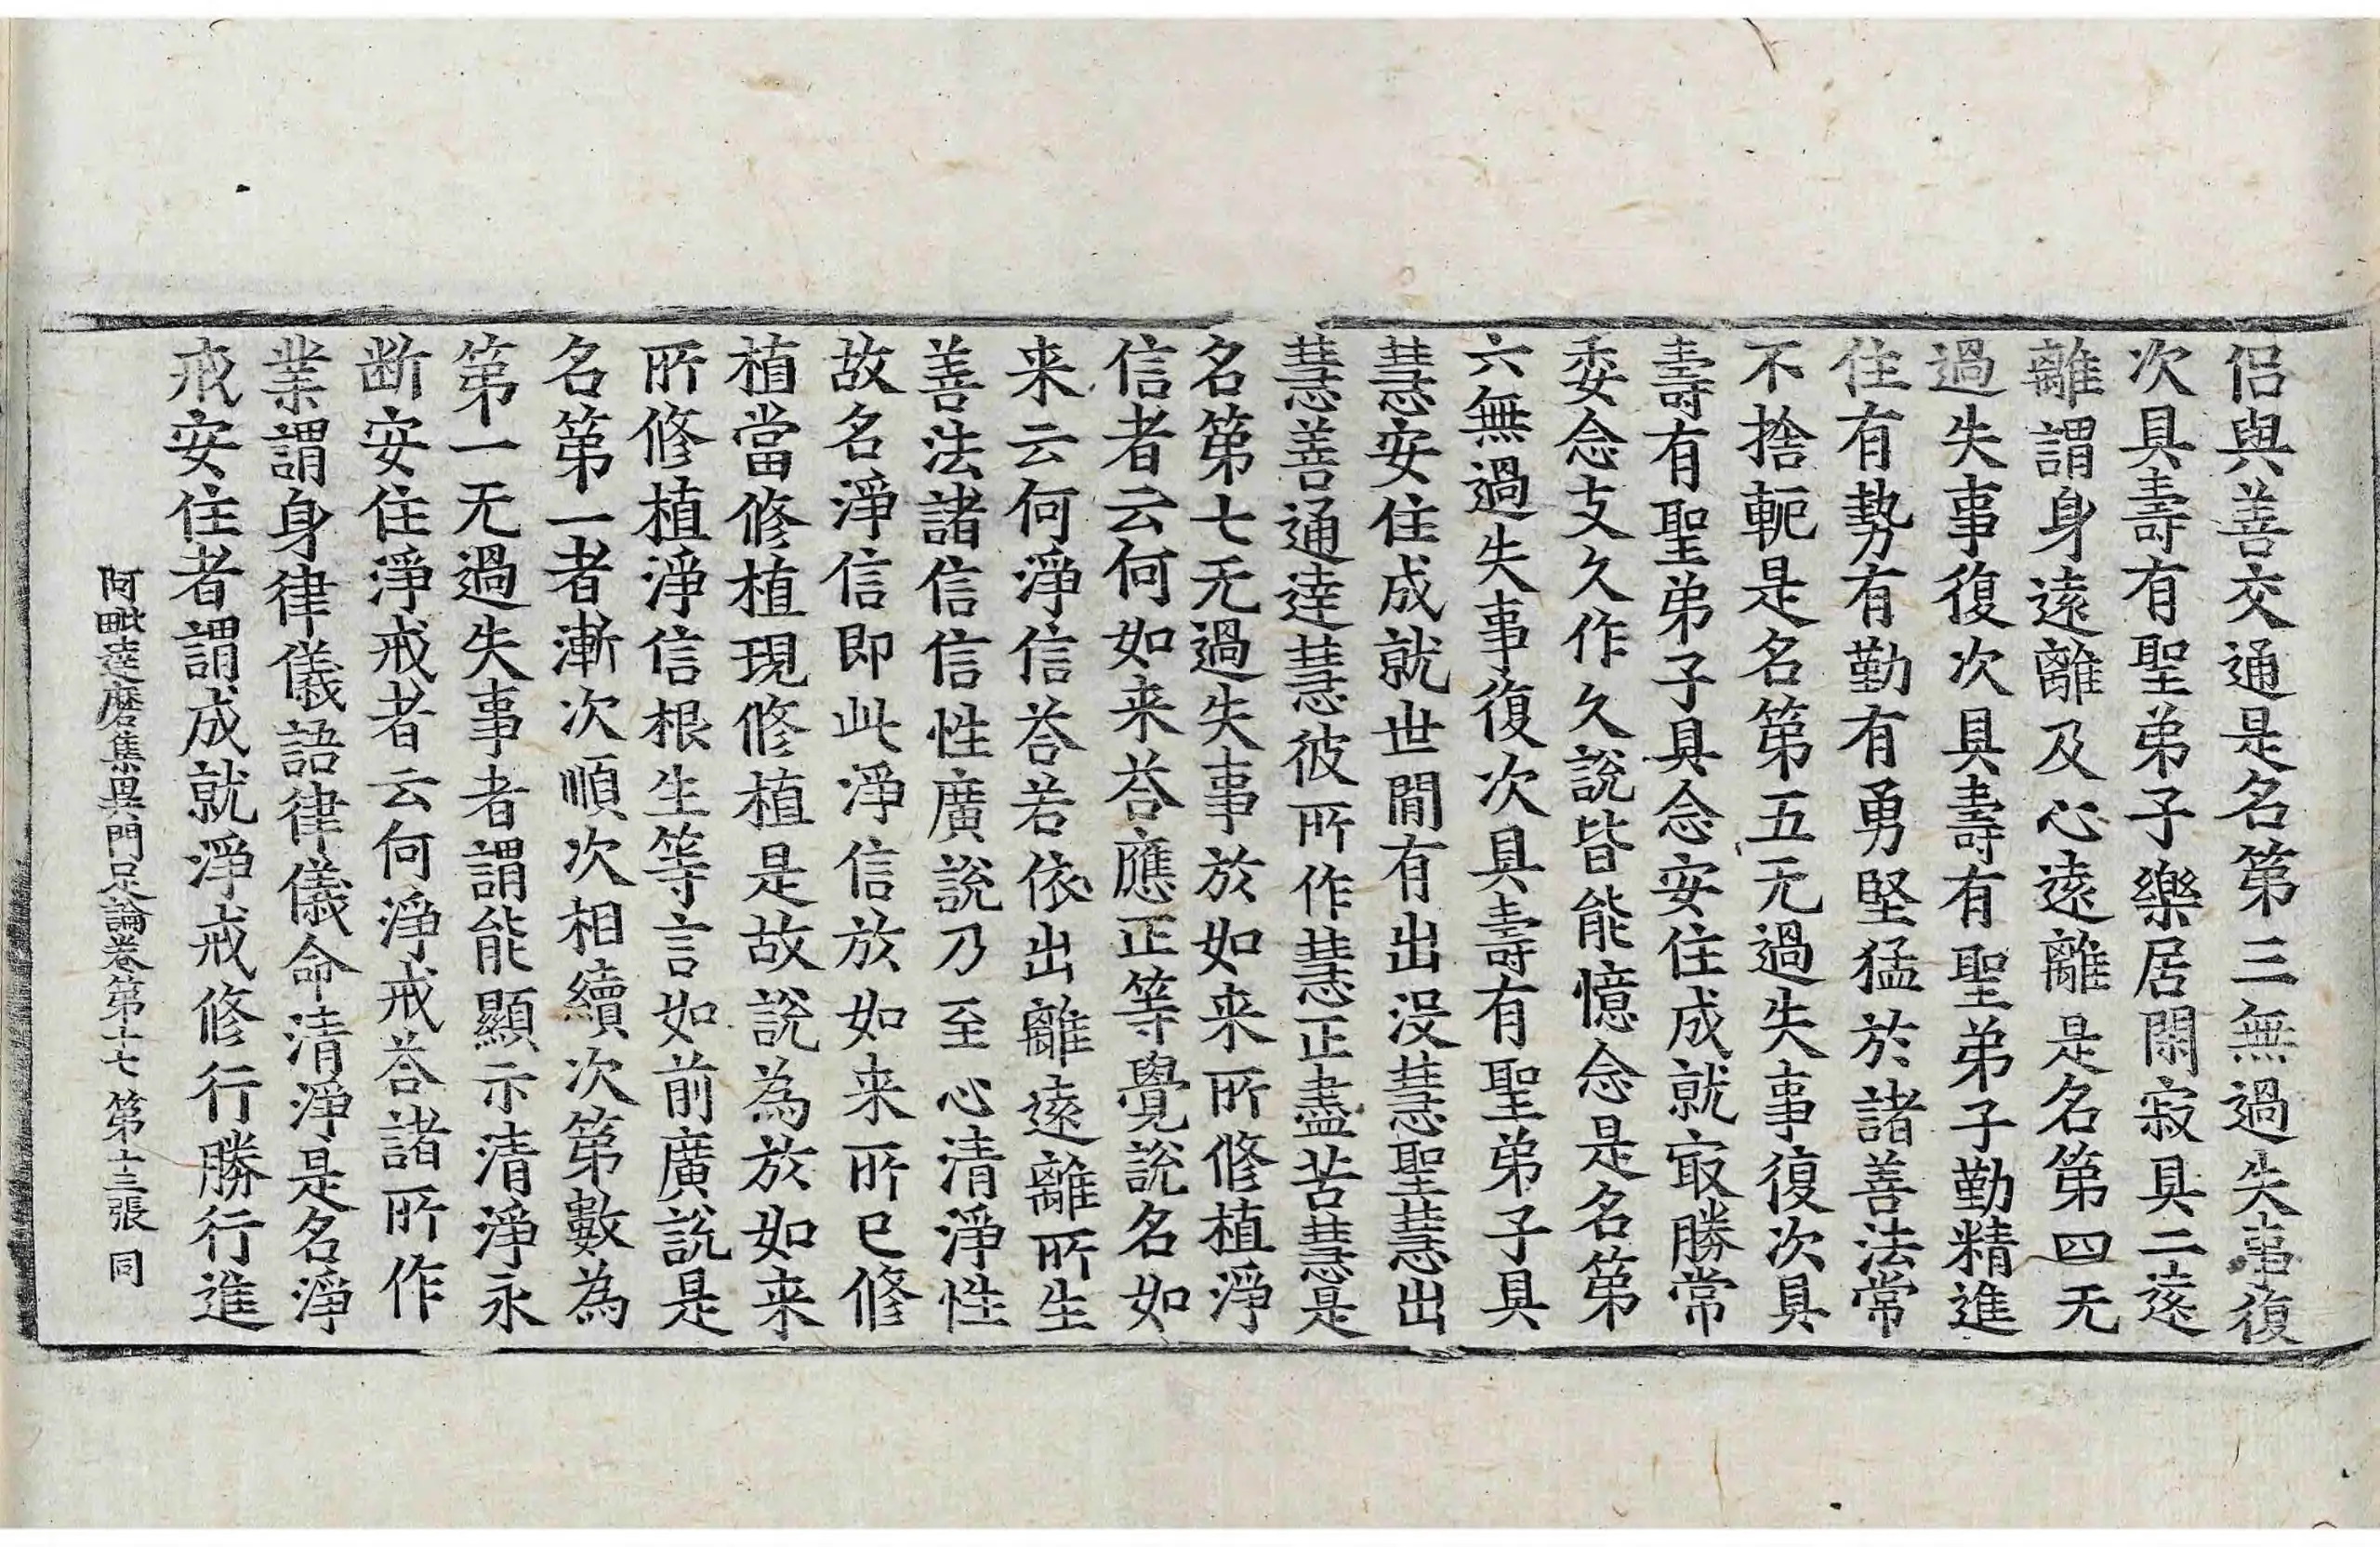 侶與善交通是名第三無過失事復
次具壽有聖弟子樂居閑寂具二遠
離謂身遠離及心遠離是名第四无
過失事復次具壽有聖弟子勤精進
住有勢有勤有勇堅猛於諸善法常
不捨軛是名第五无過失事復次具
壽有聖弟子具念安住成就㝡勝常
委念支久作久說皆能憶念是名第
六無過失事復次具壽有聖弟子具
慧安住成就世閒有出没慧聖慧出
慧善通達慧彼所作慧正盡苦慧是
名第七无過失事於如来所修植淨
信者云何如来荅應正等覺說名如
来云何淨信荅若依出離遠離所生
善法諸信信性廣說乃至心清淨性
故名淨信即此淨信於如来所已修
植當修植現修植是故說為於如来
所修植淨信根生等言如前廣說是
名第一者漸次順次相續次第數為
第一无過失事者謂能顯示清淨永
断安住淨戒者云何淨戒荅諸所作
業謂身律儀語律儀命清淨是名淨
戒安住者謂成就淨戒修行勝行進
阿毗達磨集異門足論卷第十七 第十三張 同